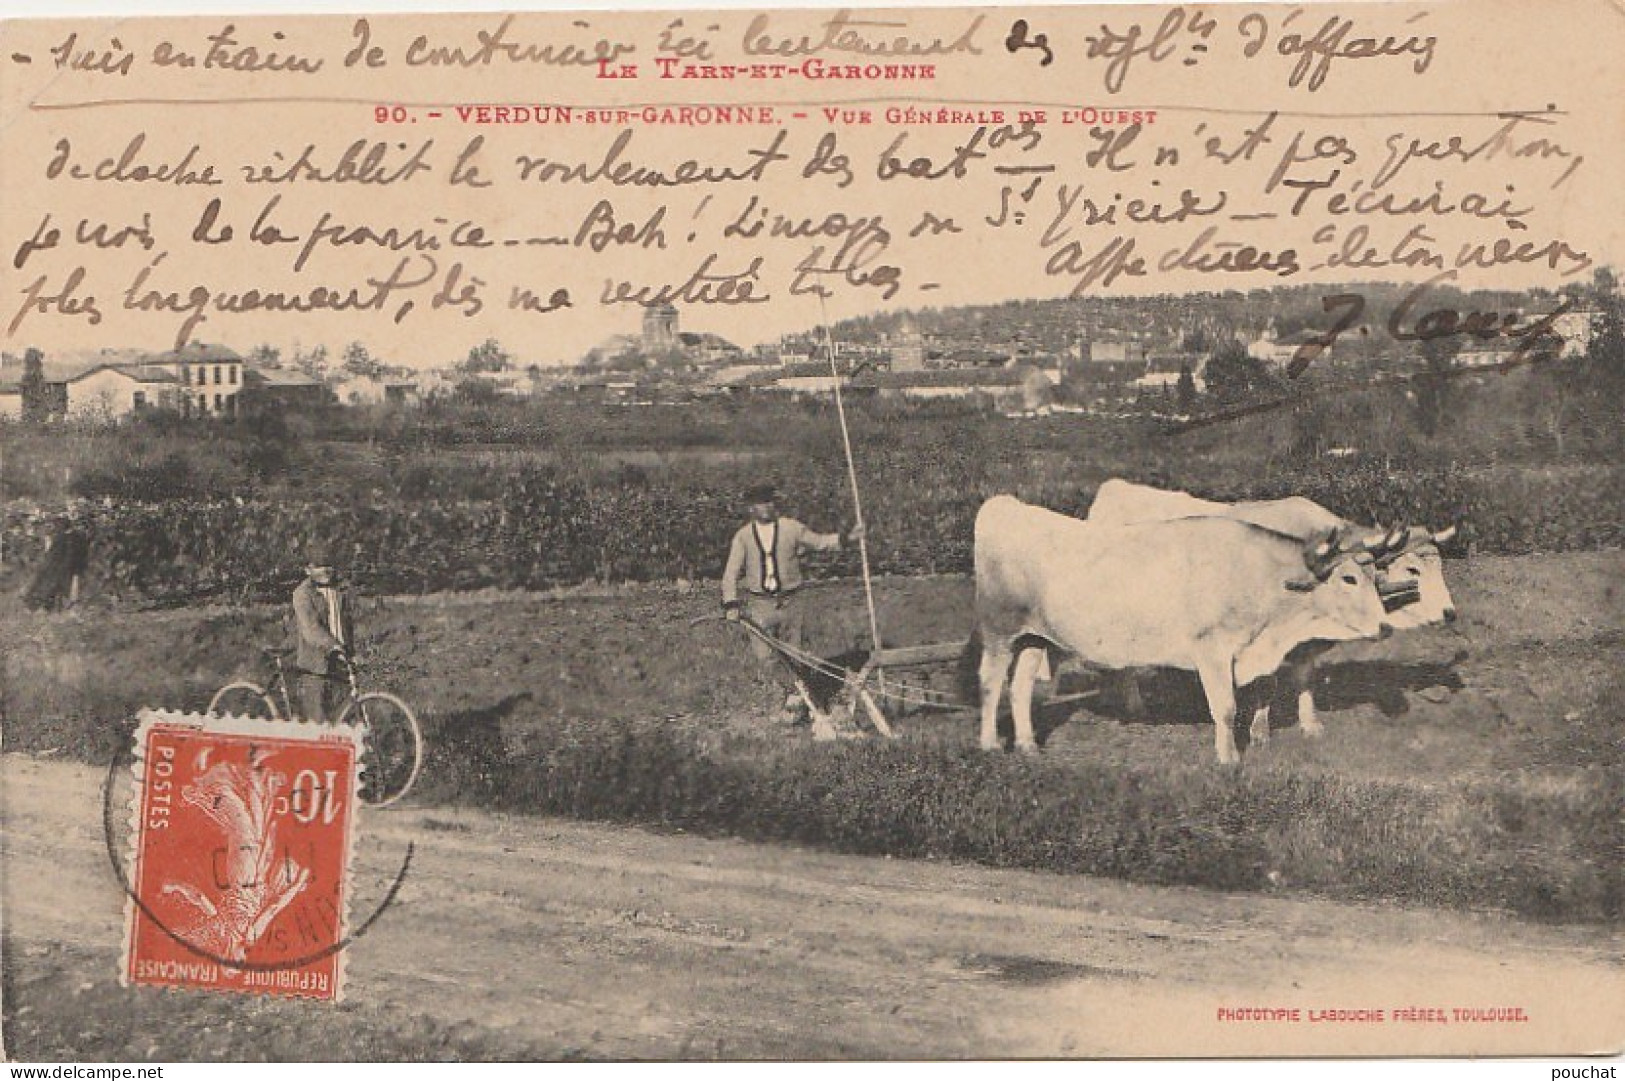 - suis en train de continuer ici lentement des règlts d'affaires
LE TARN-ET-GARONNE
90. - VERDUN-SUR-GARONNE. - VUE GÉNÉRALE DE L'OUEST
De cloche rétablit le roulement des bat^ons - Il n'est pas question,
je crois, de la province - Bah! Limoges ou St Yrieix - T'écrirai
plus longuement, dès ma rentrée - Affectueus^t de ton vieux
J.
POSTES
10c
RÉPUBLIQUE FRANÇAISE
PHOTOTYPIE LABOUCHE FRÈRES, TOULOUSE.
pouchat